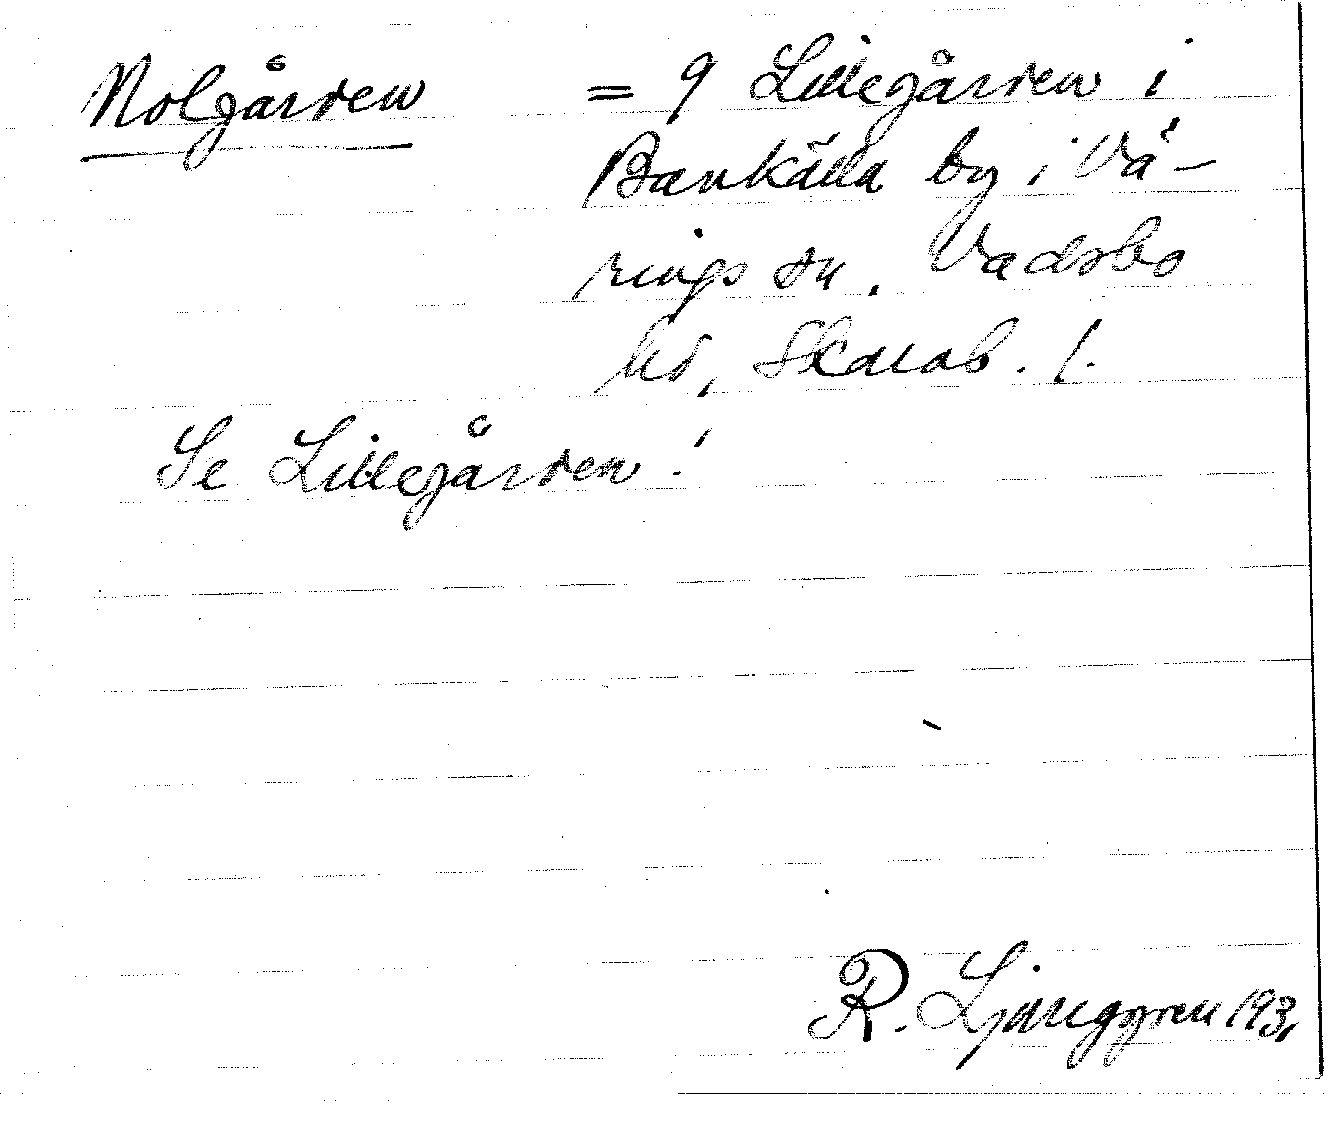 Nolgården = 9 Lillegården i
Bankälla by i Vä-
rings sn, Vadsbo
hd, Skarab. l.
Se Lillegården!
R. Ljunggren 193,